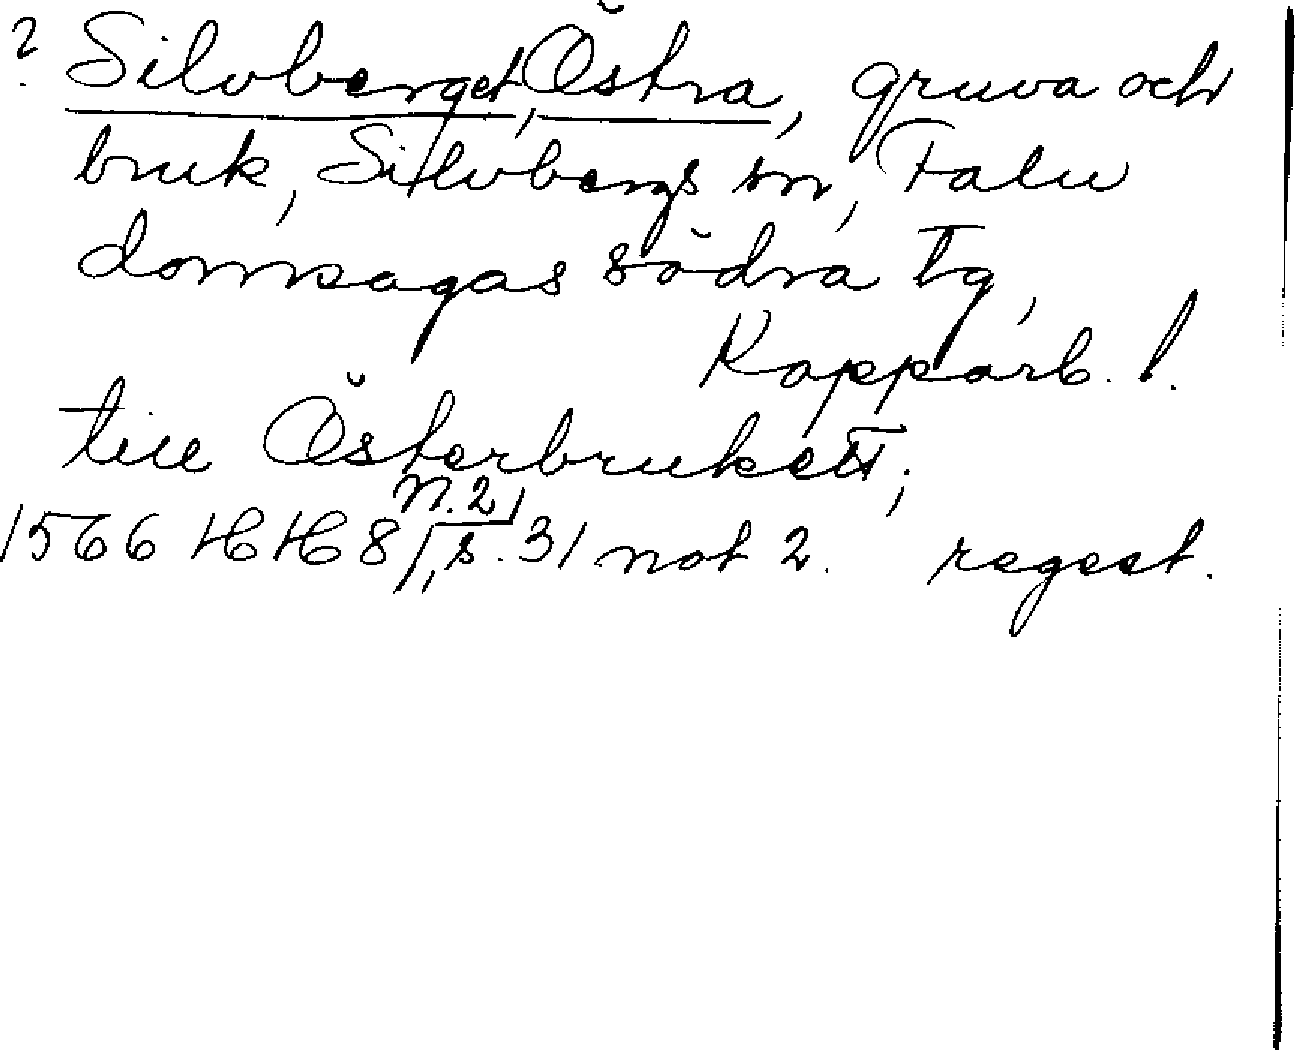 ? Silvberget, Östra, gruva och
bruk, Silvbergs sn, Falu
domsagas södra tg,
Kopparb. l.
till Österbrukett;
1566 HH 8/1, n. 2, s. 31 not 2. regest.